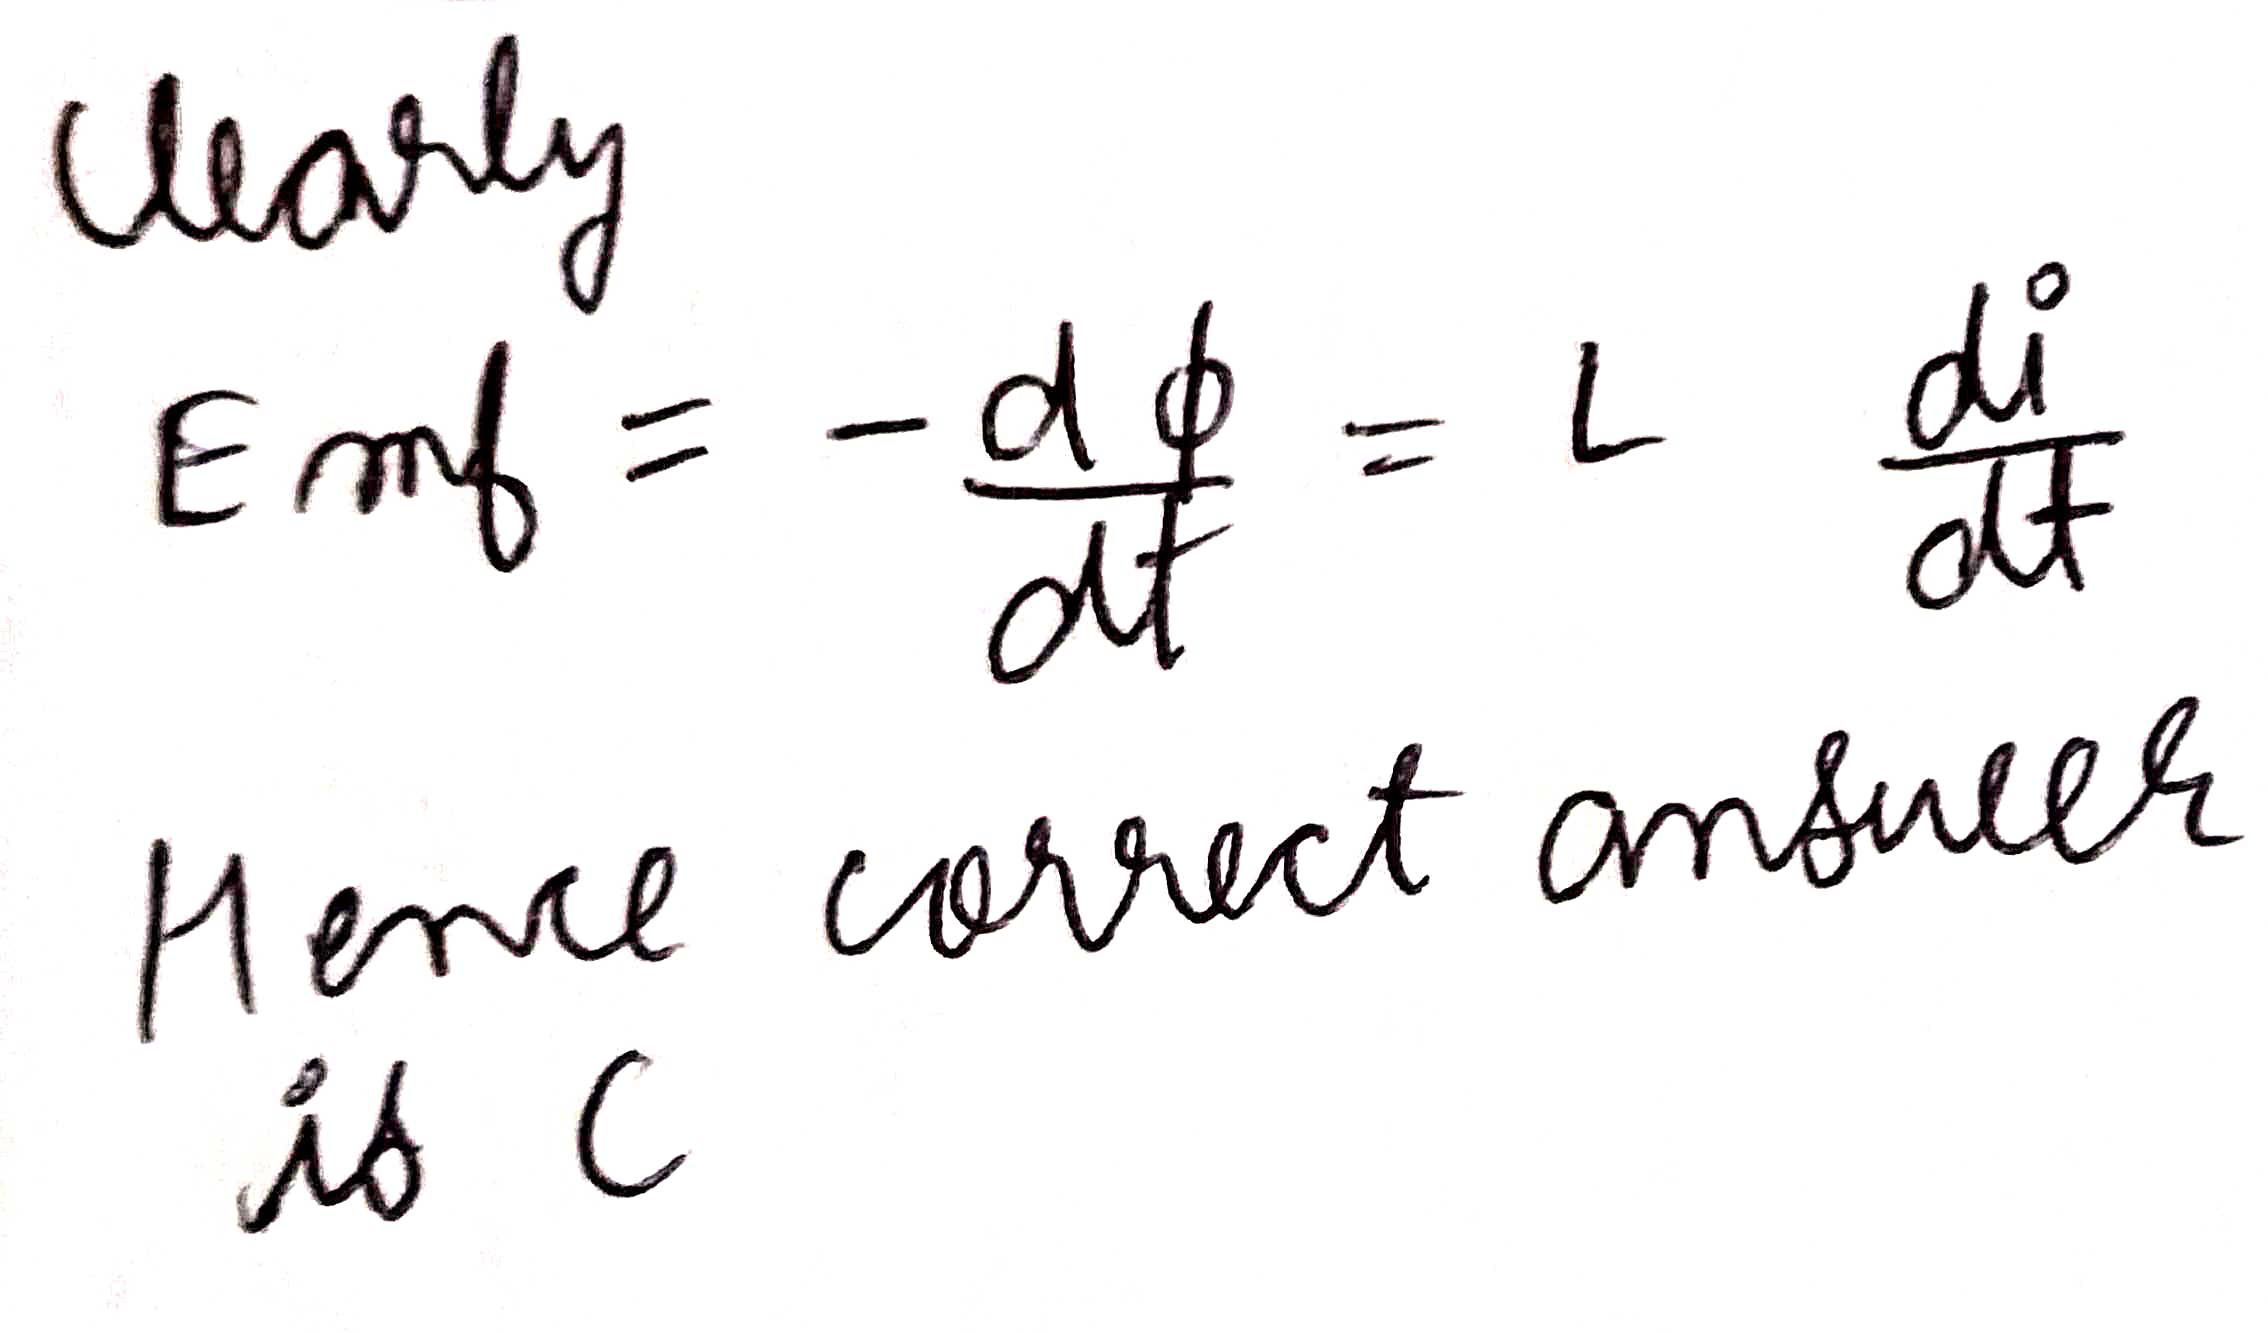 Clearly
Emf = - dφ/dt = L di/dt
Hence correct answer
is C